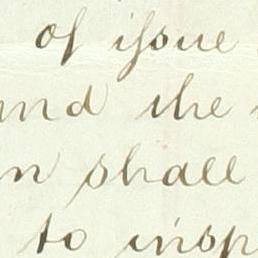 of issue
and the
n shall
to insp